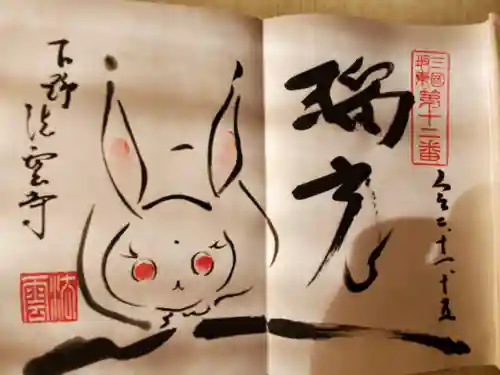 三國
坂東
第十二番
瑞光
令二.十一.十五
下野
法雲寺
法雲